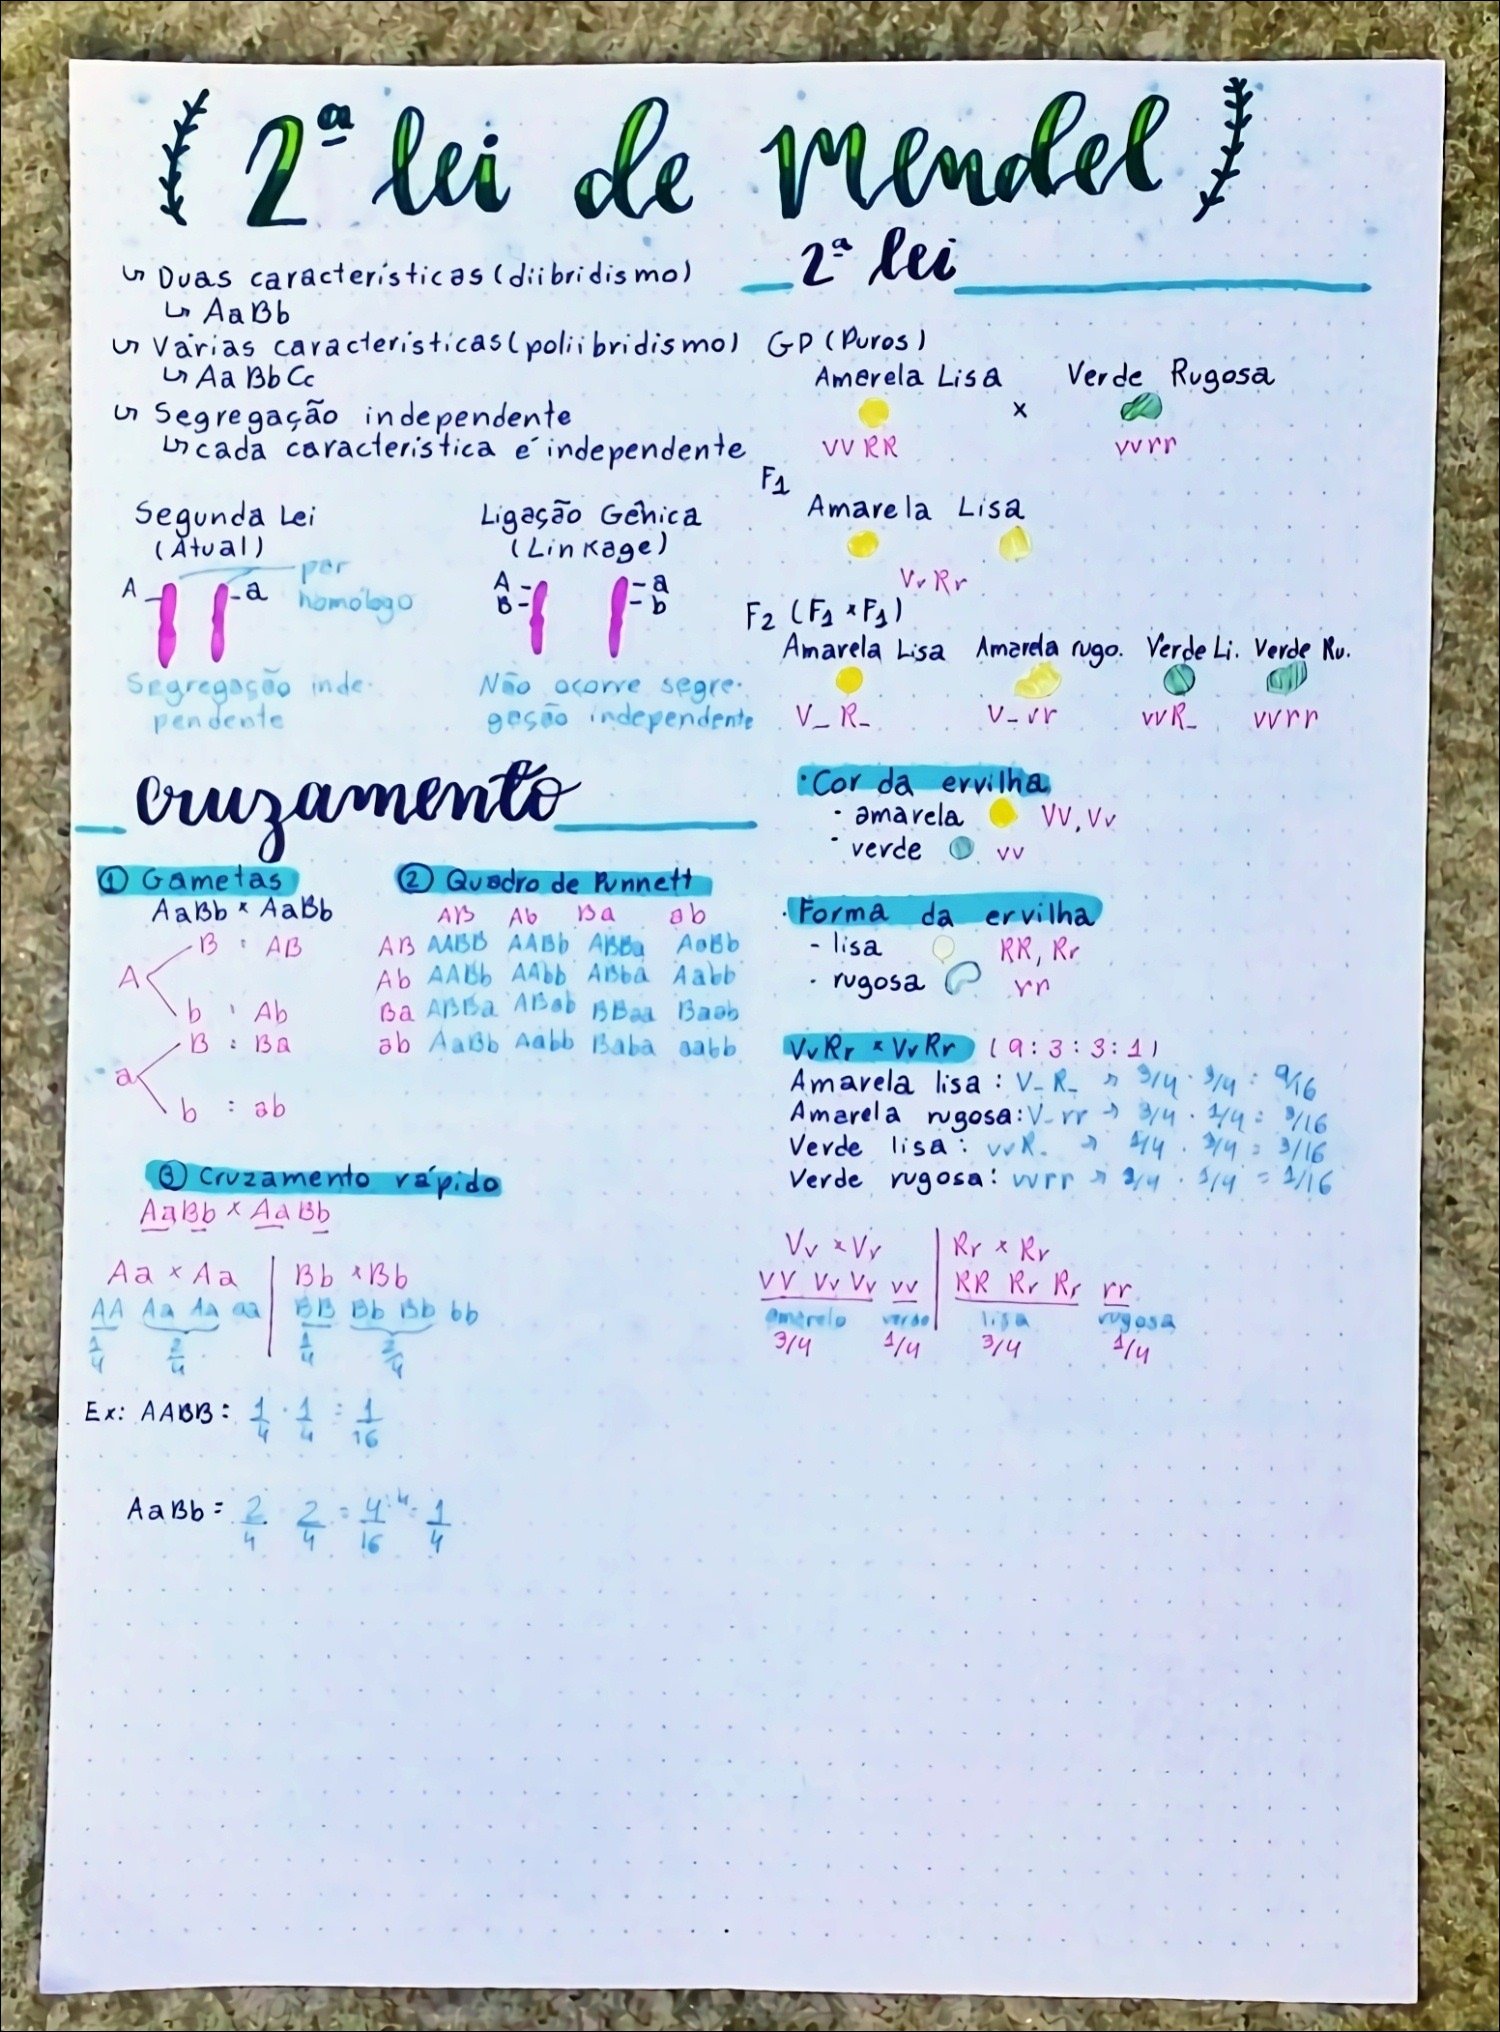 2ª lei de Mendel
↳ Duas características (diibridismo)
↳ AaBb
↳ Várias características (poliibridismo)
↳ AaBbCc
↳ Segregação independente
↳ cada característica é independente
Segunda Lei
(Atual)
A
a
par
homólogo
Segregação inde-
pendente
Ligação Gênica
(Linkage)
A
B
a
b
Não ocorre segre-
gação independente
cruzamento
① Gametas
AaBb x AaBb
A
B : AB
b : Ab
a
B : Ba
b : ab
② Quadro de Punnett
AB Ab Ba ab
AB AABB AABb ABBa AaBb
Ab AABb AAbb ABba Aabb
Ba ABBa ABab BBaa Baab
ab AaBb Aabb Baba aabb
③ Cruzamento rápido
AaBb x AaBb
Aa x Aa | Bb x Bb
AA Aa Aa aa | BB Bb Bb bb
1/4 2/4 | 1/4 2/4
Ex: AABB: 1/4 · 1/4 = 1/16
AaBb = 2/4 2/4 = 4/16 :4 = 1/4
2ª lei
GP (Puros)
Amerela Lisa x Verde Rugosa
VVRR vvrr
F1
Amarela Lisa
VvRr
F2 (F1 x F1)
Amarela Lisa Amarela rugo. Verde Li. Verde Ru.
V_ R_ V_ rr vvR_ vvrr
· Cor da ervilha
· amarela VV, Vv
· verde vv
· Forma da ervilha
- lisa RR, Rr
· rugosa rr
VvRr x VvRr (9:3:3:1)
Amarela lisa: V_R_ → 3/4 · 3/4 = 9/16
Amarela rugosa: V_rr → 3/4 · 1/4 = 3/16
Verde lisa: vvR_ → 1/4 · 3/4 = 3/16
Verde rugosa: vvrr → 1/4 · 1/4 = 1/16
Vv x Vv | Rr x Rr
VV Vv Vv vv | RR Rr Rr rr
amarelo verde | lisa rugosa
3/4 1/4 3/4 1/4